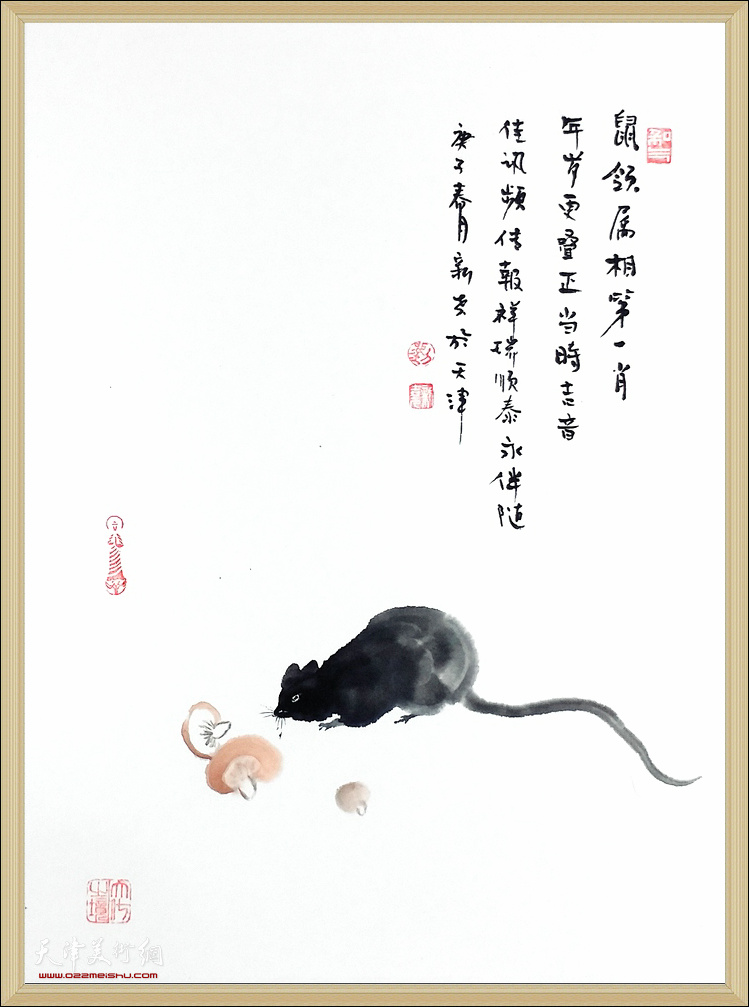 鼠领属相第一肖
年岁更叠正当時吉音
佳讯频传報祥瑞顺泰永伴随
庚子春月新安於天津
天津美術網
www.022meishu.com